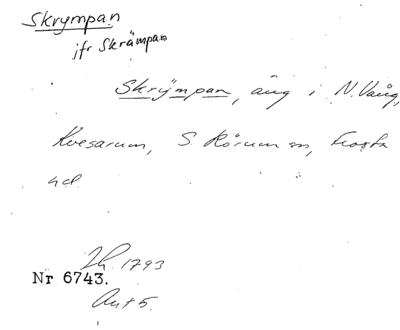 Skrympan
jfr Skrämpan
Skrympan, äng i N. Vång,
Kvesarum, S. Rörum sn, Frosta
hd.
1793
Nr 6743.
Akt 5.